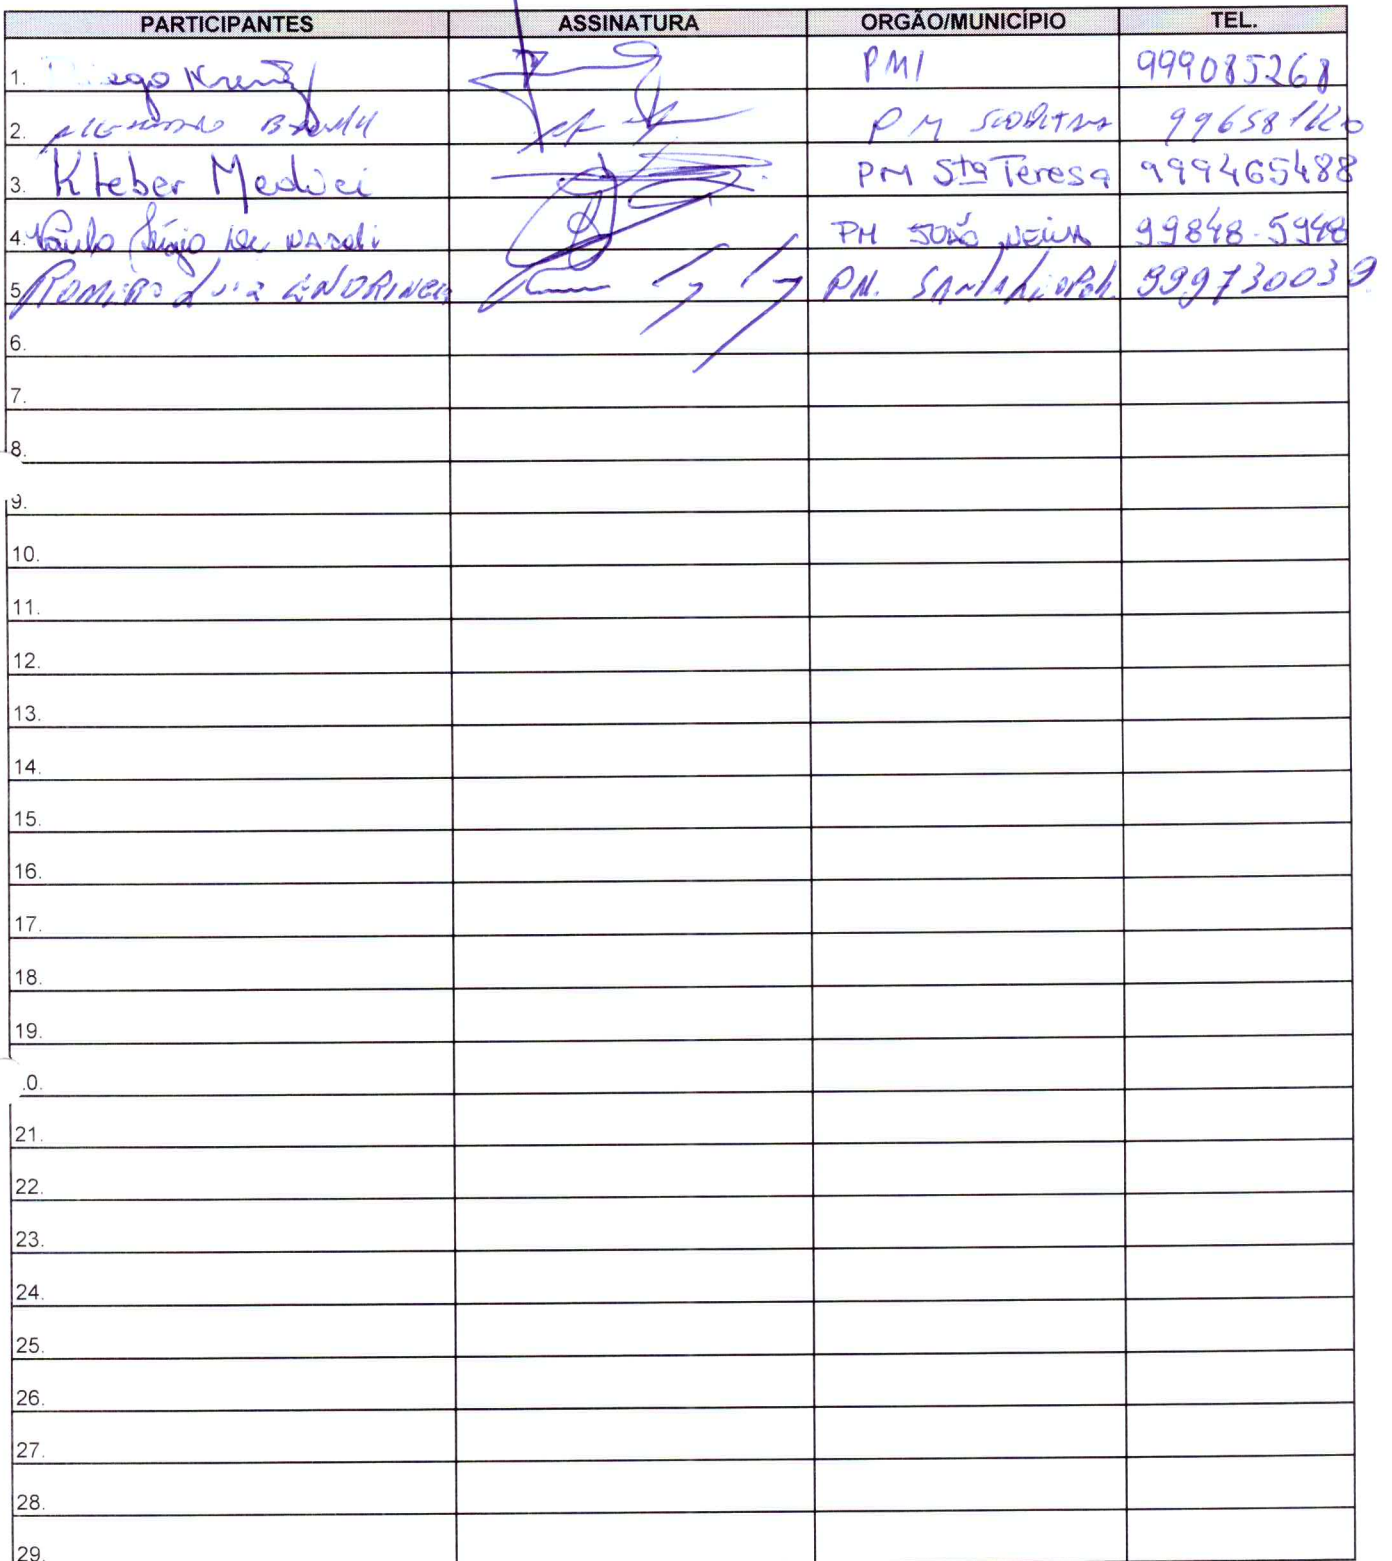 PARTICIPANTES ASSINATURA ORGÃO/MUNICÍPIO TEL.
1. PM1 999085268
2. PM
3. Kleber Medici PM Sta Teresa 999465488
4. Paulo Sérgio de Nardi PM JOÃO NEIVA 99848-5948
5. ROMERO Luiz ENDRINGER PM. 999730039
6.
7.
8.
9.
10.
11.
12.
13.
14.
15.
16.
17.
18.
19.
0.
21.
22.
23.
24.
25.
26.
27.
28.
29.